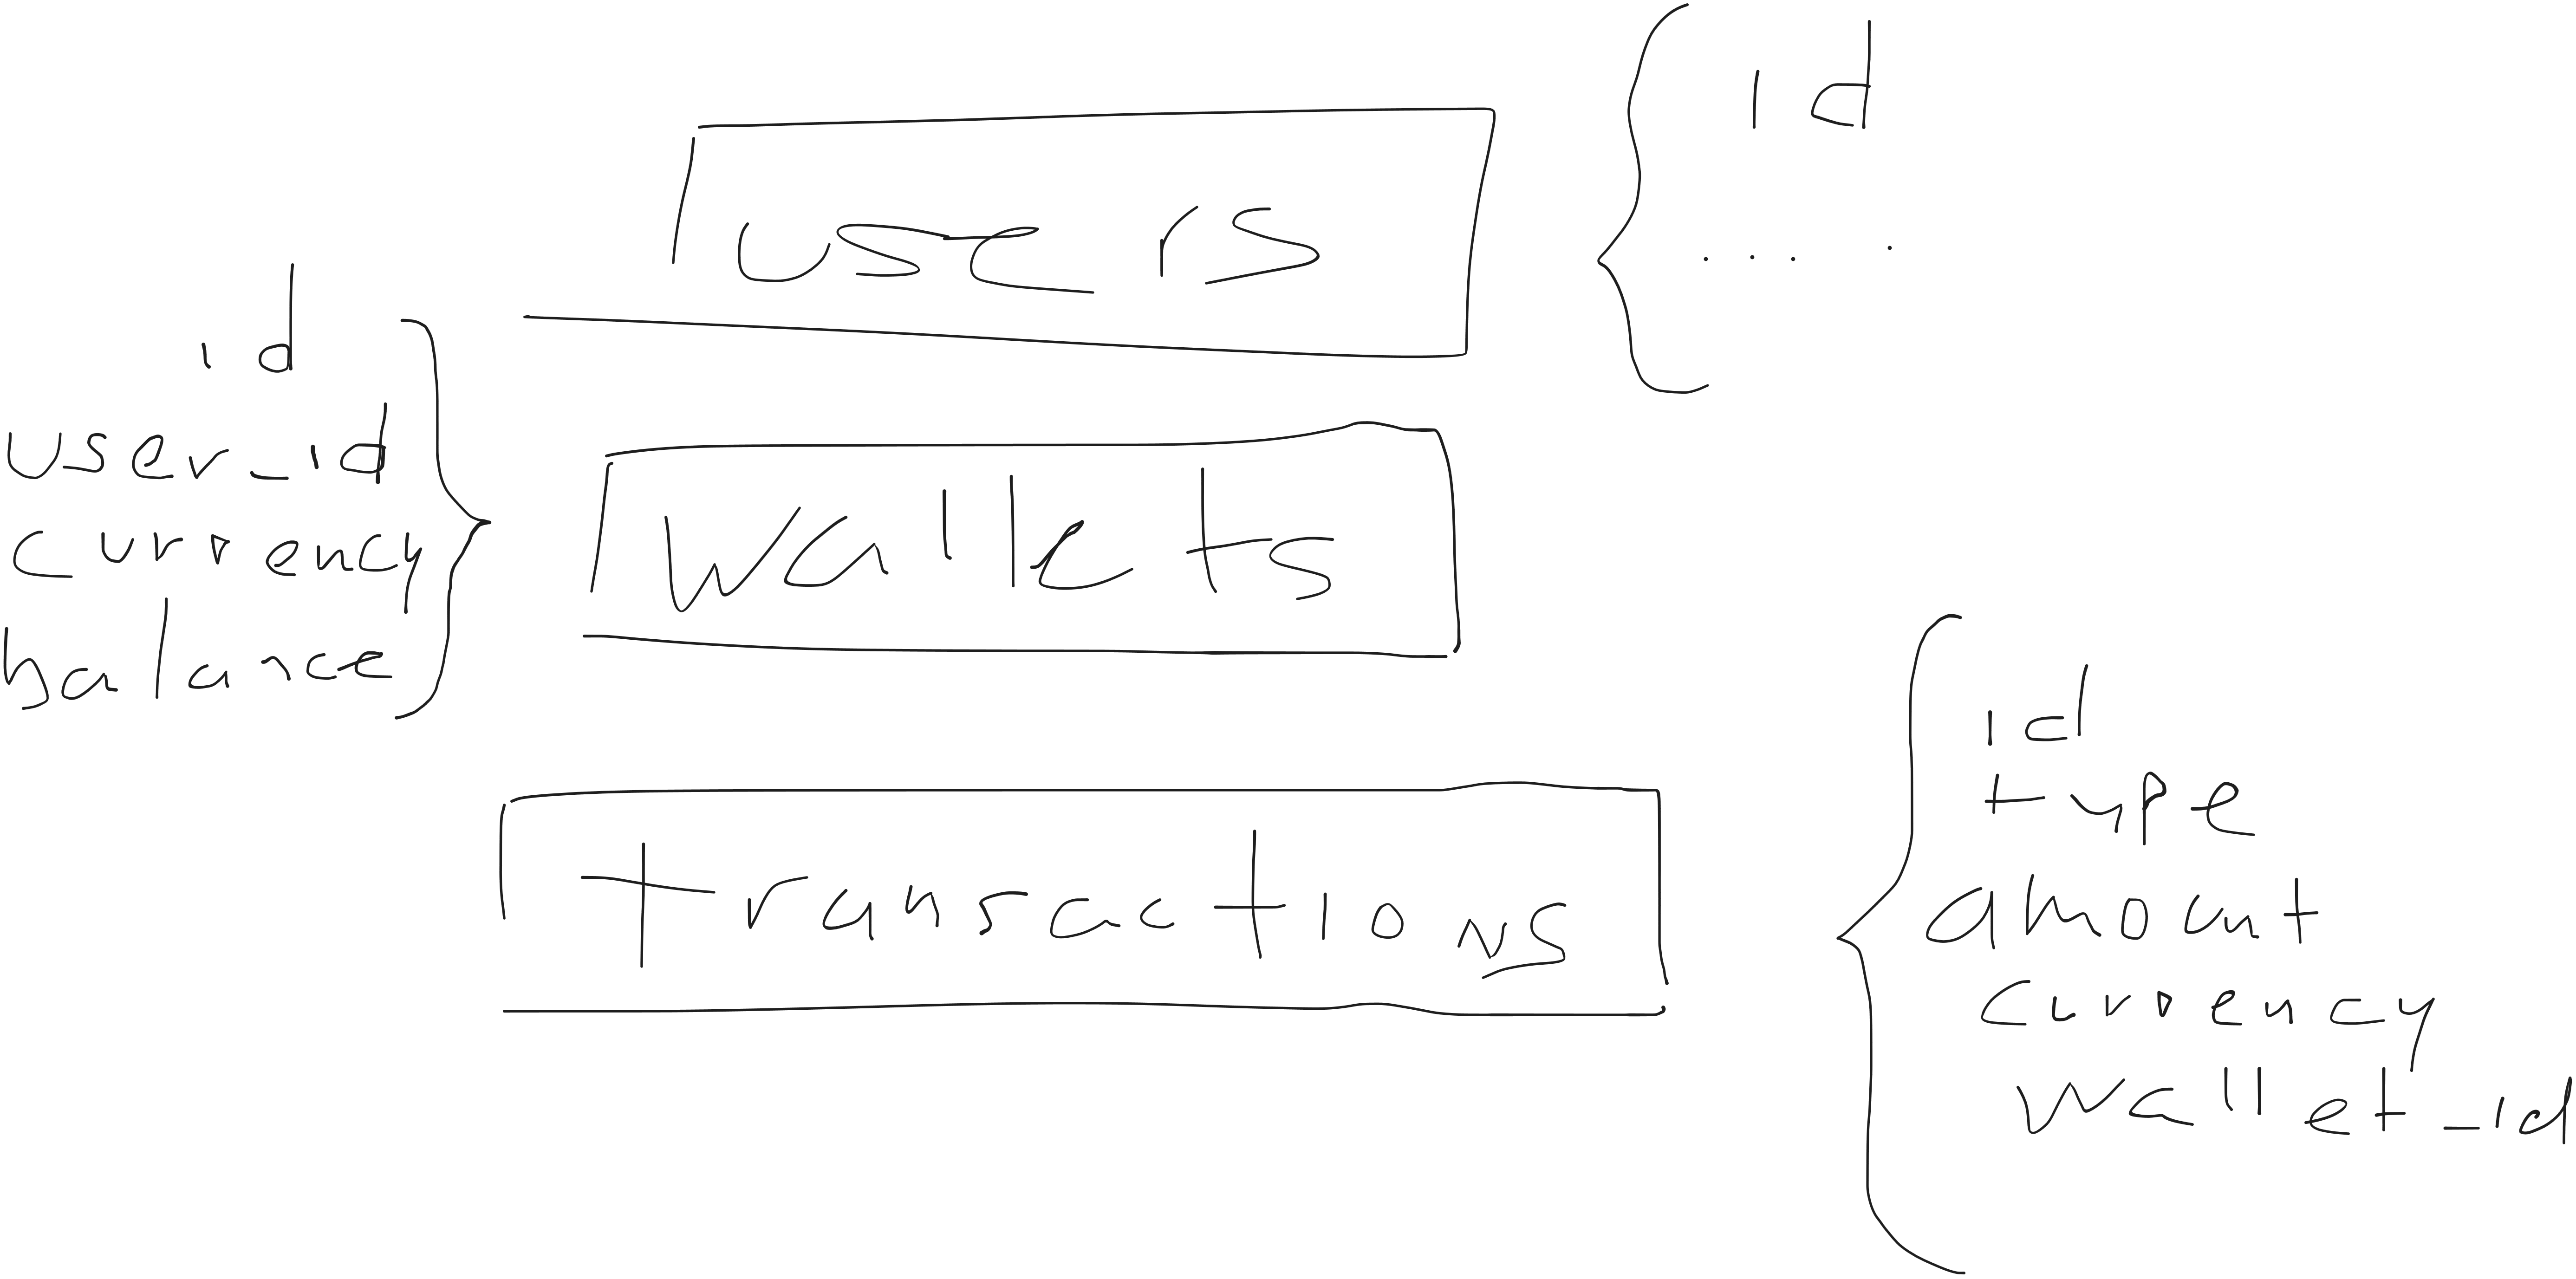 users
id
. . . .
id
user_id
currency
balance
wallets
transactions
id
type
amount
currency
wallet_id